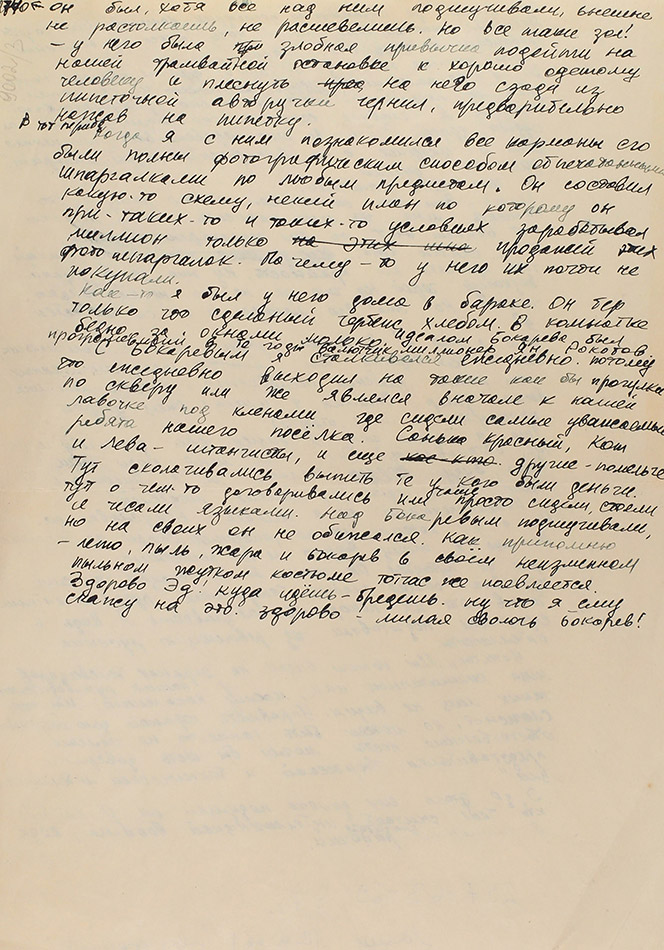 он был, хотя все над ним подшучивали, внешне
не растолкаешь, не расшевелишь. Но все таки зол!
– у него была злобная привычка подойти на
нашей трамвайной остановке к хорошо одетому
человеку и плеснуть на него сзади из
пипеточной авторучки чернил, предварительно
нажав на пипетку.
В тот период
когда я с ним познакомился все карманы его
были полны фотографическим способом отпечатанными
шпаргалками по любым предметам. Он составил
какую-то схему, некий план по которому он
при таких-то и таких-то условиях зарабатывал
миллион только на этих продажей этих
фотошпаргалок. Почему-то у него их почти не
покупали.
Как-то я был у него дома в бараке. Он тер
только что сделанный чертеж хлебом. В комнате
бедно, за окнами идеалом Бокарева был
прогремевший в те годы валютчик миллионер Ян Рокотов
С Бокаревым я сталкивался ежедневно. потому
что ежедневно выходил на такие как бы прогулки
по скверу или же являлся вначале к нашей
лавочке под кленами где сидели самые уважаемые
ребята нашего посёлка. Санька красный, Кот
и Лева – штангисты, и еще другие – поменьше
Тут сколачивались выпить те у кого были деньги.
тут о чем-то договаривались или чаще просто сидели, стояли
и чесали языками. Над Бокаревым подшучивали,
но на своих он не обижался. Как припомню
– лето, пыль, жара и Бокарев в своём неизменном
пыльном жутком костюме тотчас же появляется.
Здорово Эд! Куда идешь-бредешь. Ну что я ему
скажу на это. Здорово – милая сволочь Бокарев!